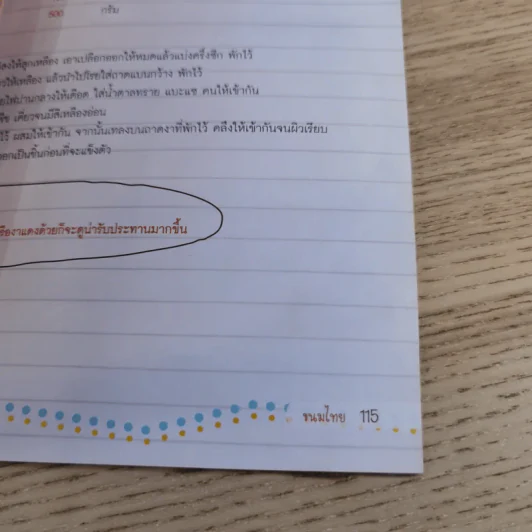 500 กรัม
ให้สุกเหลือง เอาเปลือกออกให้หมดแล้วแบ่งครึ่งซีก พักไว้
ให้เหลือง แล้วนำไปโรยใส่ถาดแบนกว้าง พักไว้
ไฟปานกลางให้เดือด ใส่น้ำตาลทราย แบะแซ คนให้เข้ากัน
เคี่ยวจนมีสีเหลืองอ่อน
ไว้ ผสมให้เข้ากัน จากนั้นเทลงบนถาดงาที่พักไว้ คลึงให้เข้ากันจนผิวเรียบ
ออกเป็นชิ้นก่อนที่จะแข็งตัว
งาแดงด้วยก็จะดูน่ารับประทานมากขึ้น
ขนมไทย 115